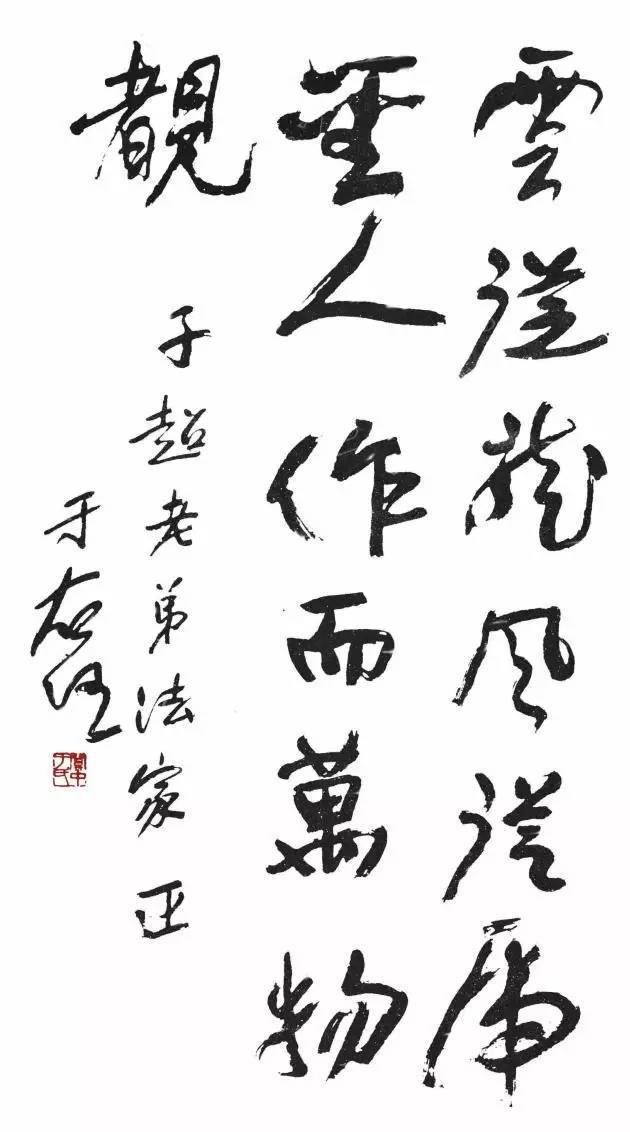 雲從龍風從虎
聖人作而萬物
覩
子超老弟法家正
于右任
關中于氏